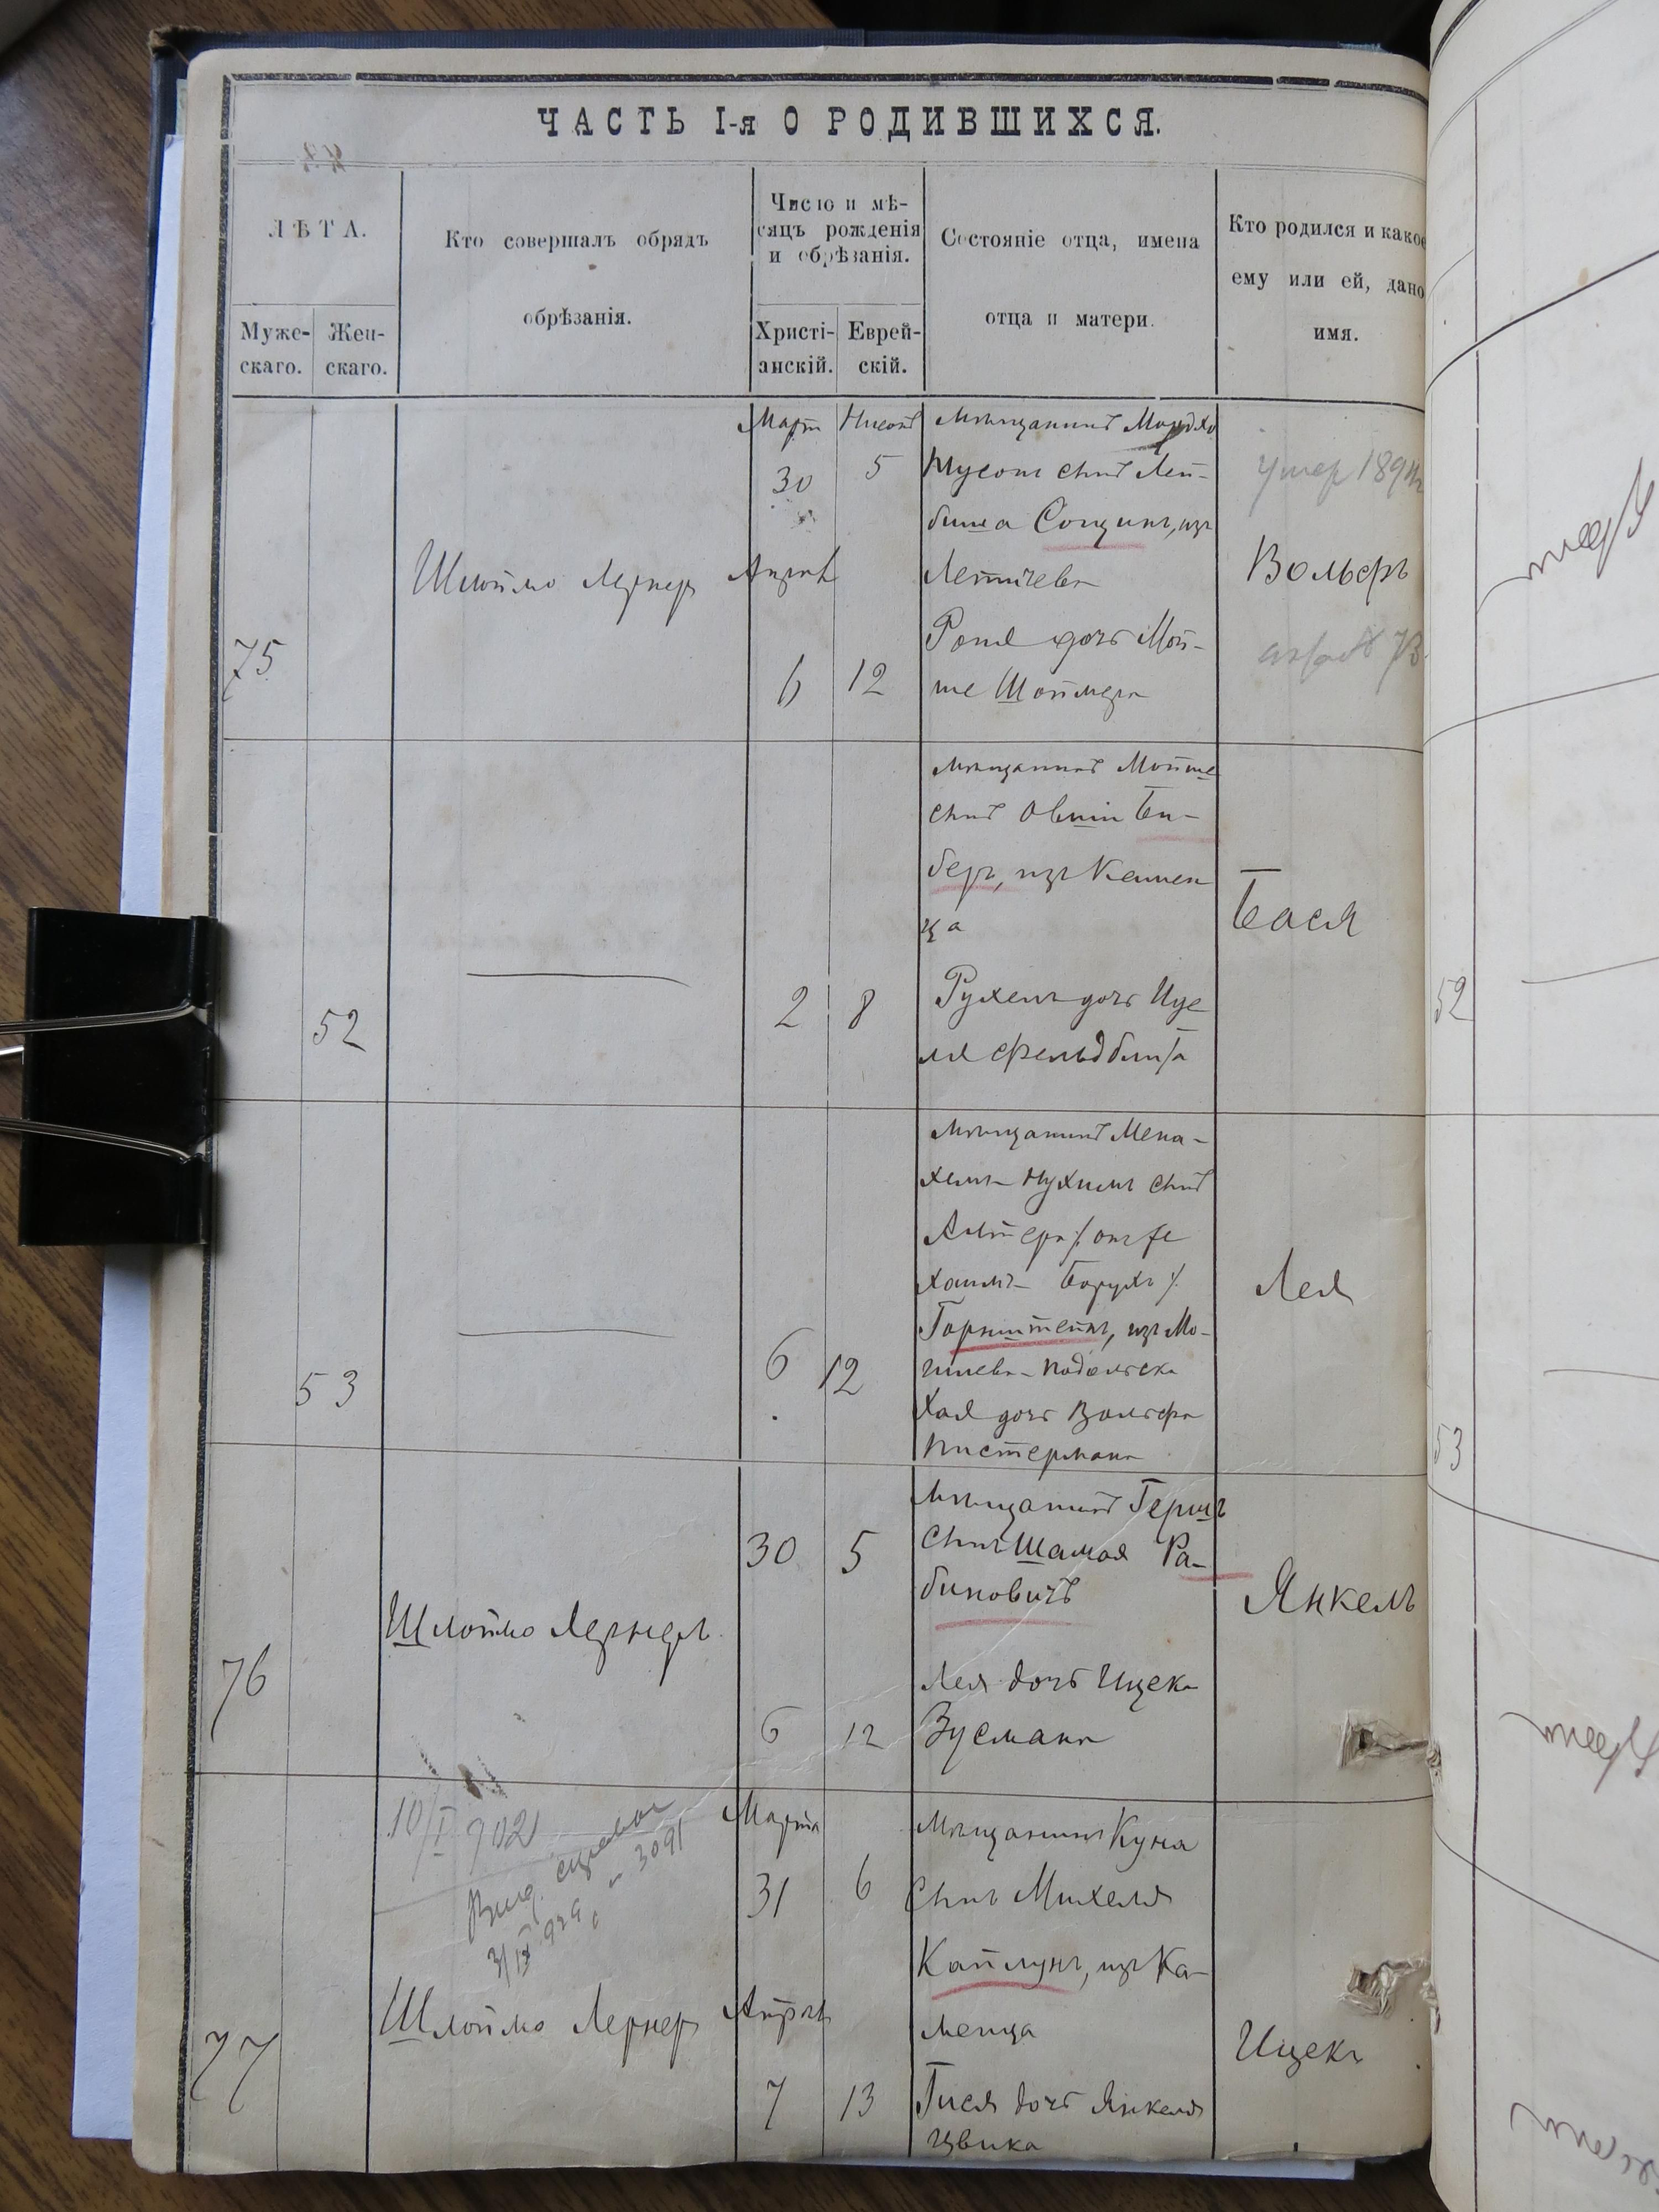 ЧАСТЬ I-я О РОДИВШИХСЯ.
ЛѢТА.
Муже-
скаго.
Жен-
скаго.
Кто совершалъ обрядъ
обрѣзанія.
Число и мѣ-
сяцъ рожденія
и обрѣзанія.
Христі-
анскій.
Еврей-
скій.
Состояніе отца, имена
отца и матери.
Кто родился и какое
ему или ей, дано
имя.
75
Шлоймо Лернеръ
Март
30
Апрѣль
6
5
12
Мѣщанинъ
сынъ Лей-
биша Сощинъ, изъ
Летичева
дочь Мой-
ше
Вольфъ
52
2
8
Мѣщанинъ Мойше
сынъ Овшии Би-
беръ, изъ Камен
ца
Рухель дочь Иде
ля Фельдблита
Бася
53
6
12
Мѣщанинъ Мена-
хемъ-Нухимъ сынъ
Алтера /онъ же
Хаимъ-Борухъ/
Горнштейнъ, изъ Мо-
гилева-Подольска
Хая дочь Вольфа
Пистермана
Лея
76
Шлоймо Лернеръ
30
6
5
12
Мѣщанинъ Гершъ
сынъ Шамая Ра-
биновичъ
Лея дочь Ицека
Зусмана
Янкель
10/I 902
77
Шлоймо Лернеръ
Марта
31
Апрѣль
7
6
13
Мѣщанинъ Куна
сынъ Михеля
Каплунъ, изъ Ка-
менца
Гися дочь Янкеля
Цвика
Ицекъ
52
53